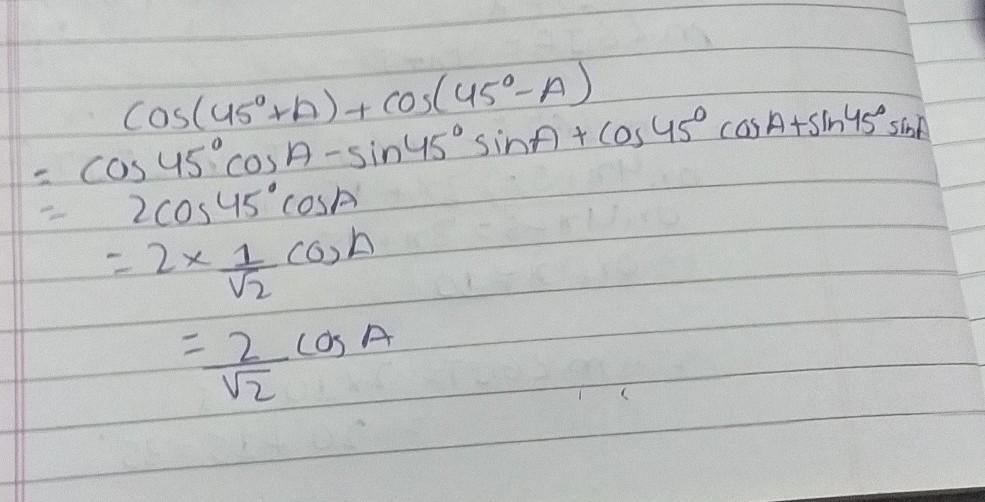 cos(45°+A)+cos(45°-A)
= cos45°cosA-sin45°sinA+cos45°cosA+sin45°sinA
= 2cos45°cosA
= 2× 1/√2 cosA
= 2/√2 cosA